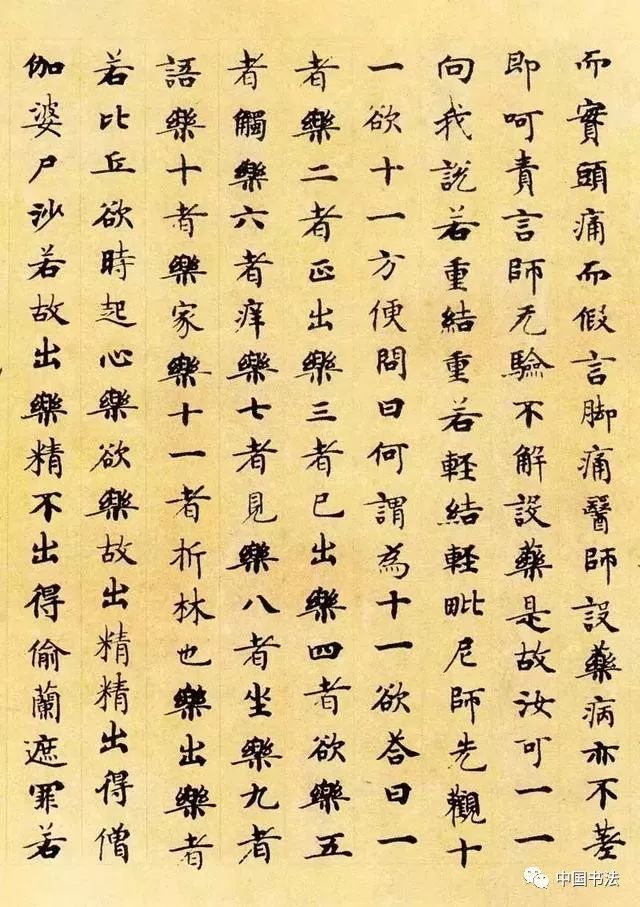 而實頭痛而假言脚痛醫師設藥病亦不差
即呵責言師无驗不解設藥是故汝可一一
向我說若重結重若輕結輕毗尼師先觀十
一欲十一方便問曰何謂為十一欲荅曰一
者樂二者正出樂三者已出樂四者欲樂五
者觸樂六者痒樂七者見樂八者坐樂九者
語樂十者樂家樂十一者折林也樂出樂者
若比丘欲時起心樂欲樂故出精精出得僧
伽婆尸沙若故出樂精不出得偷蘭遮罪若
中国书法